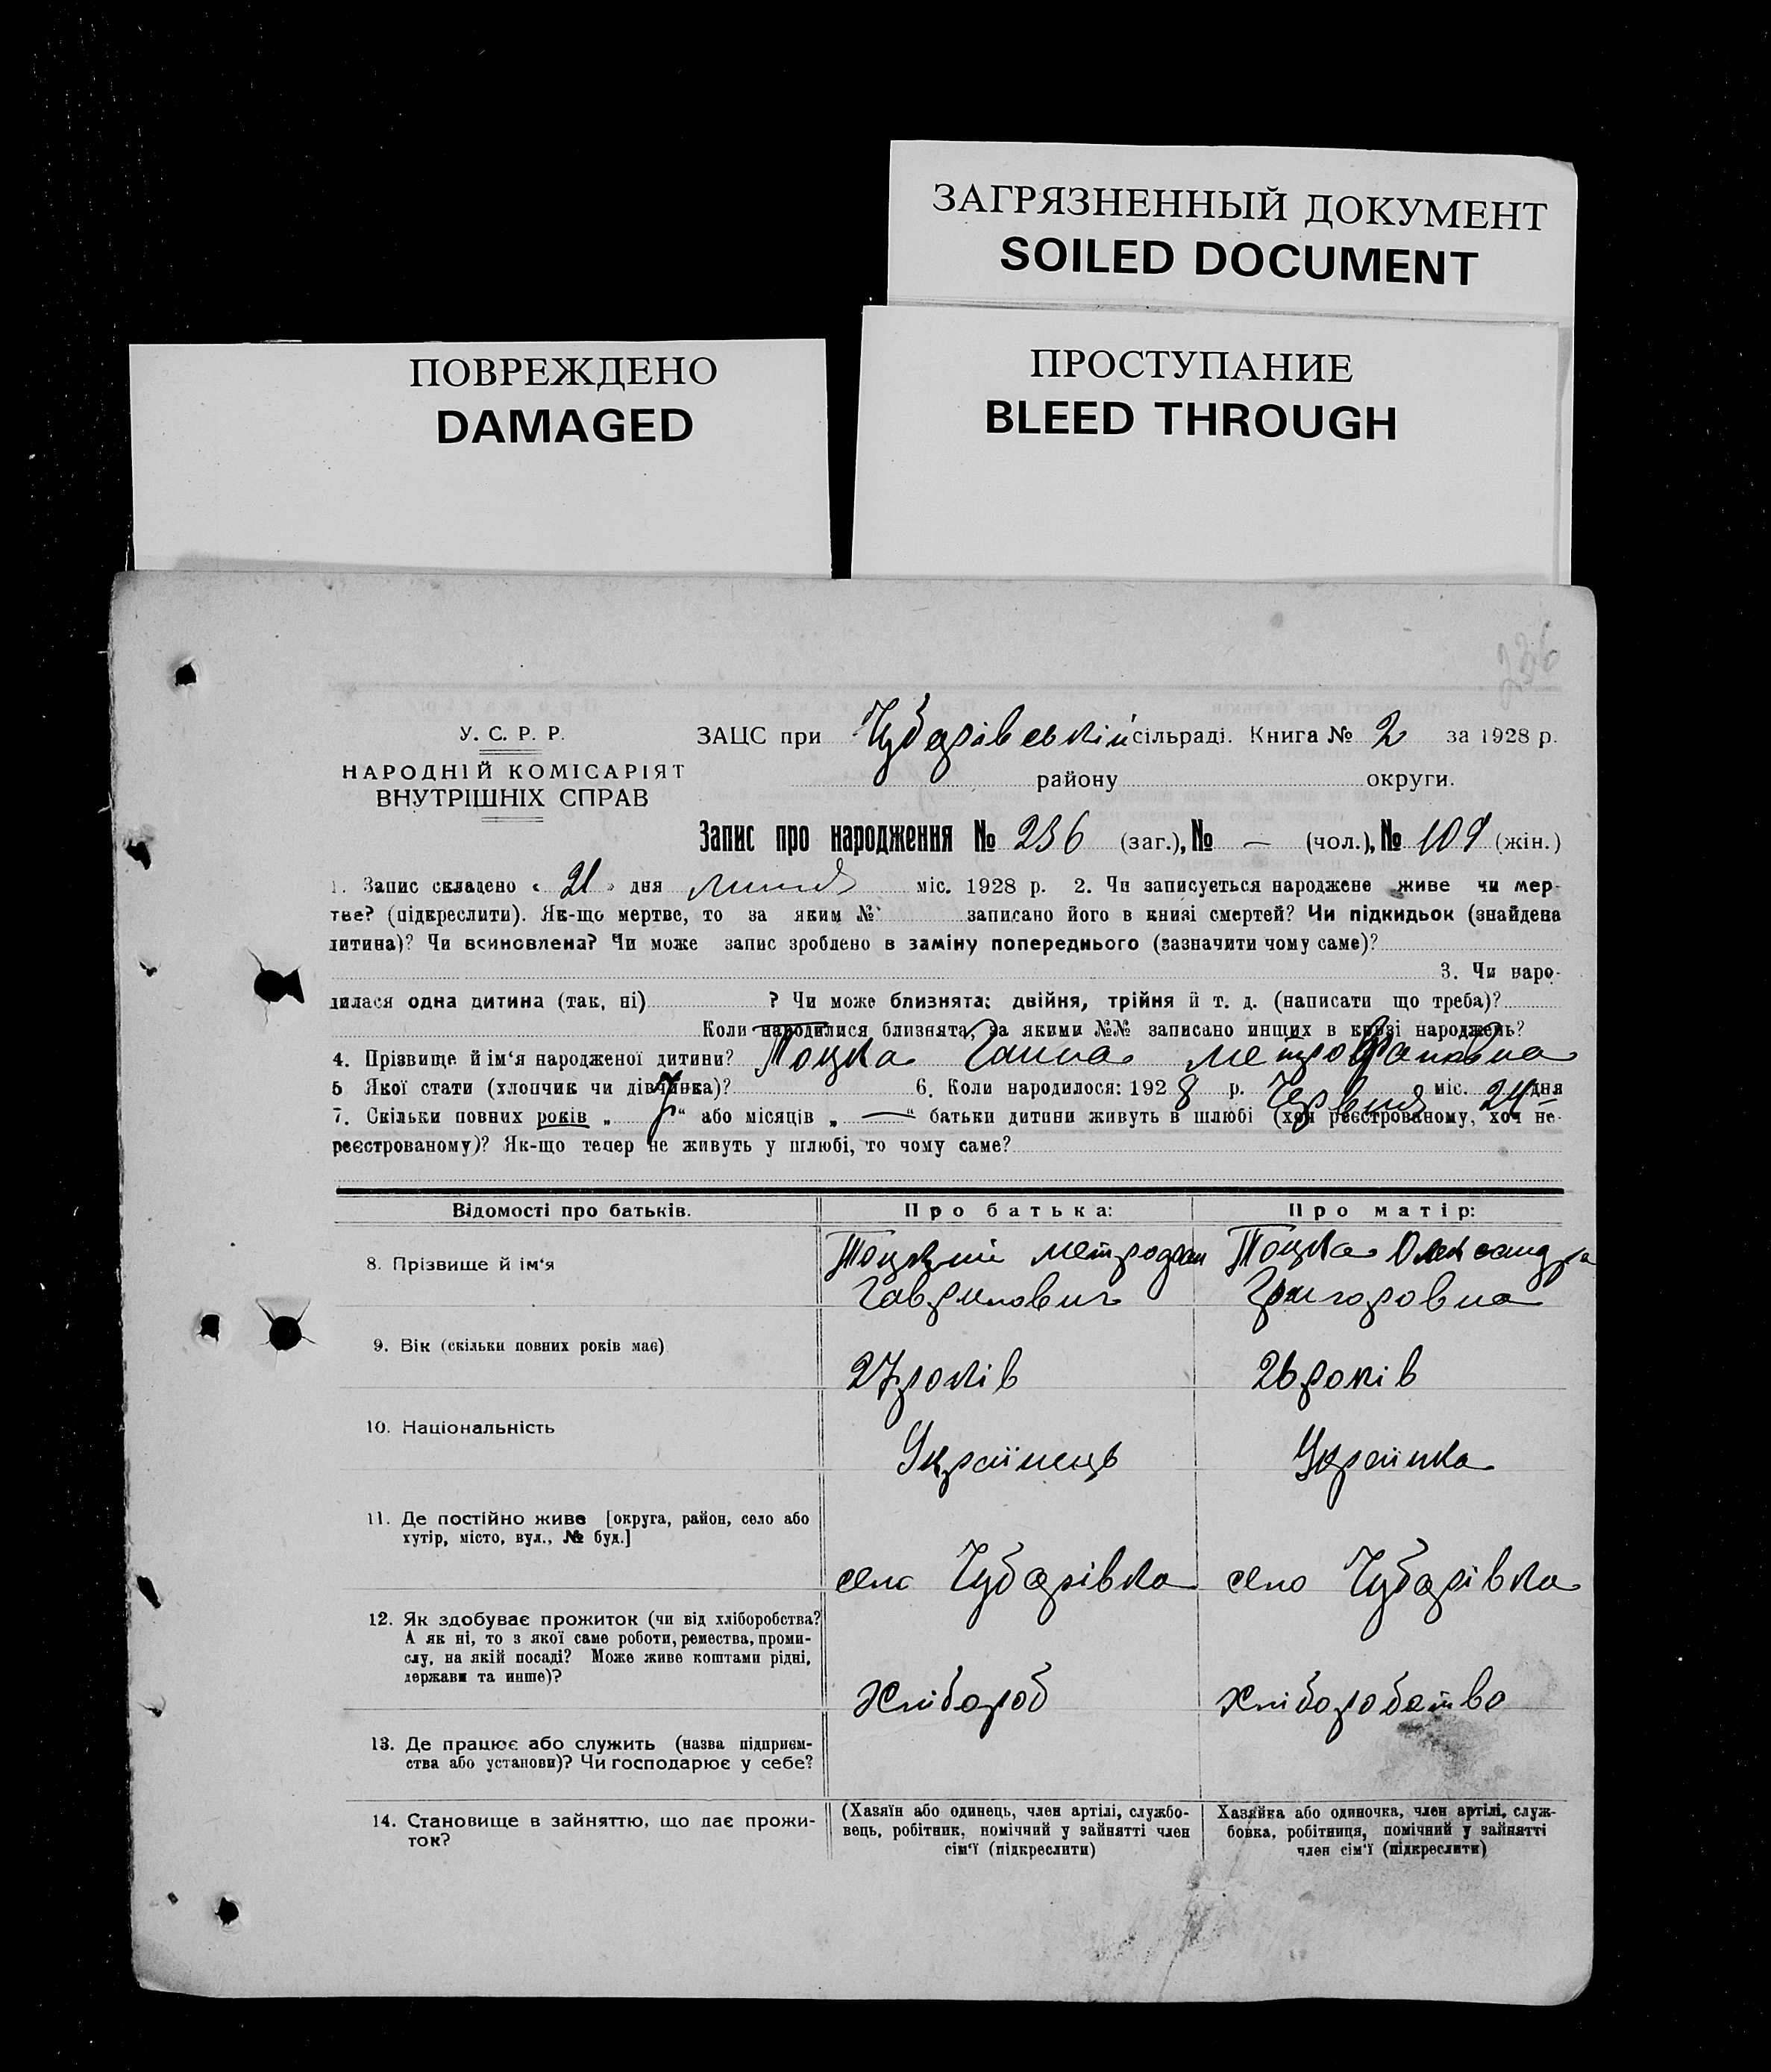 ЗАГРЯЗНЕННЫЙ ДОКУМЕНТ
SOILED DOCUMENT
ПОВРЕЖДЕНО
DAMAGED
ПРОСТУПАНИЕ
BLEED THROUGH
236
У. С. Р. Р.
НАРОДНІЙ КОМІСАРІЯТ
ВНУТРІШНІХ СПРАВ
ЗАЦС при Чубарівській сільраді. Книга № 2 за 1928 р.
району округи.
Запис про народження № 236 (заг.), № — (чол.), № 109 (жін.)
1. Запис складено « 21 » дня липня міс. 1928 р. 2. Чи записується народжене живе чи мер-
тве? (підкреслити). Як-що мертве, то за яким № записано його в книзі смертей? Чи підкидьок (знайдена
дитина)? Чи всиновлена? Чи може запис зроблено в заміну попереднього (зазначити чому саме)?
3. Чи наро-
дилася одна дитина (так, ні) ? Чи може близнята: двійня, трійня й т. д. (написати що треба)?
Коли народилися близнята, за якими №№ записано инщих в книзі народжень?
4. Прізвище й ім‘я народженої дитини? Тоцка Ганна Метрофановна
5 Якої стати (хлопчик чи дівчинка)? 6. Коли народилося: 1928 р. Червня міс. 24 дня
7. Скільки повних років „ 7 “ або місяців „ — “ батьки дитини живуть в шлюбі (хоч реєстрованому, хоч не-
реєстрованому)? Як-що тепер не живуть у шлюбі, то чому саме?
Відомості про батьків. Про батька: Про матір:
8. Прізвище й ім‘я
Тоцкий Метрофан
Гаврилович
Тоцка Олександра
Григоровна
9. Вік (скільки повних років має)
27 років
26 років
10. Національність
Українець
Українка
11. Де постійно живе [округа, район, село або
хутір, місто, вул., № буд.]
село Чубарівка
село Чубарівка
12. Як здобуває прожиток (чи від хліборобства?
А як ні, то з якої саме роботи, ремества, проми-
слу, на якій посаді? Може живе коштами рідні,
держави та инше)?
Хлібороб
Хліборобство
13. Де працює або служить (назва підприєм-
ства або установи)? Чи господарює у себе?
14. Становище в зайняттю, що дає прожи-
ток?
(Хазяїн або одинець, член артілі, службо-
вець, робітник, помічний у зайнятті член
сім‘ї (підкреслити)
Хазяйка або одиночка, член артілі, служ-
бовка, робітниця, помічний у зайнятті
член сім‘ї (підкреслити)